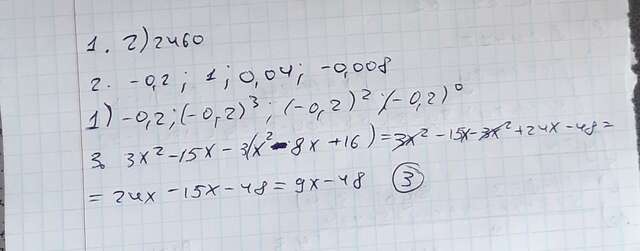 1. 2) 2460
2. -0,2; 1; 0,04; -0,008
1) -0,2; (-0,2)³; (-0,2)²; (-0,2)⁰
3. 3x²-15x-3(x²-8x+16)=3x²-15x-3x²+24x-48=
=24x-15x-48=9x-48 (3)